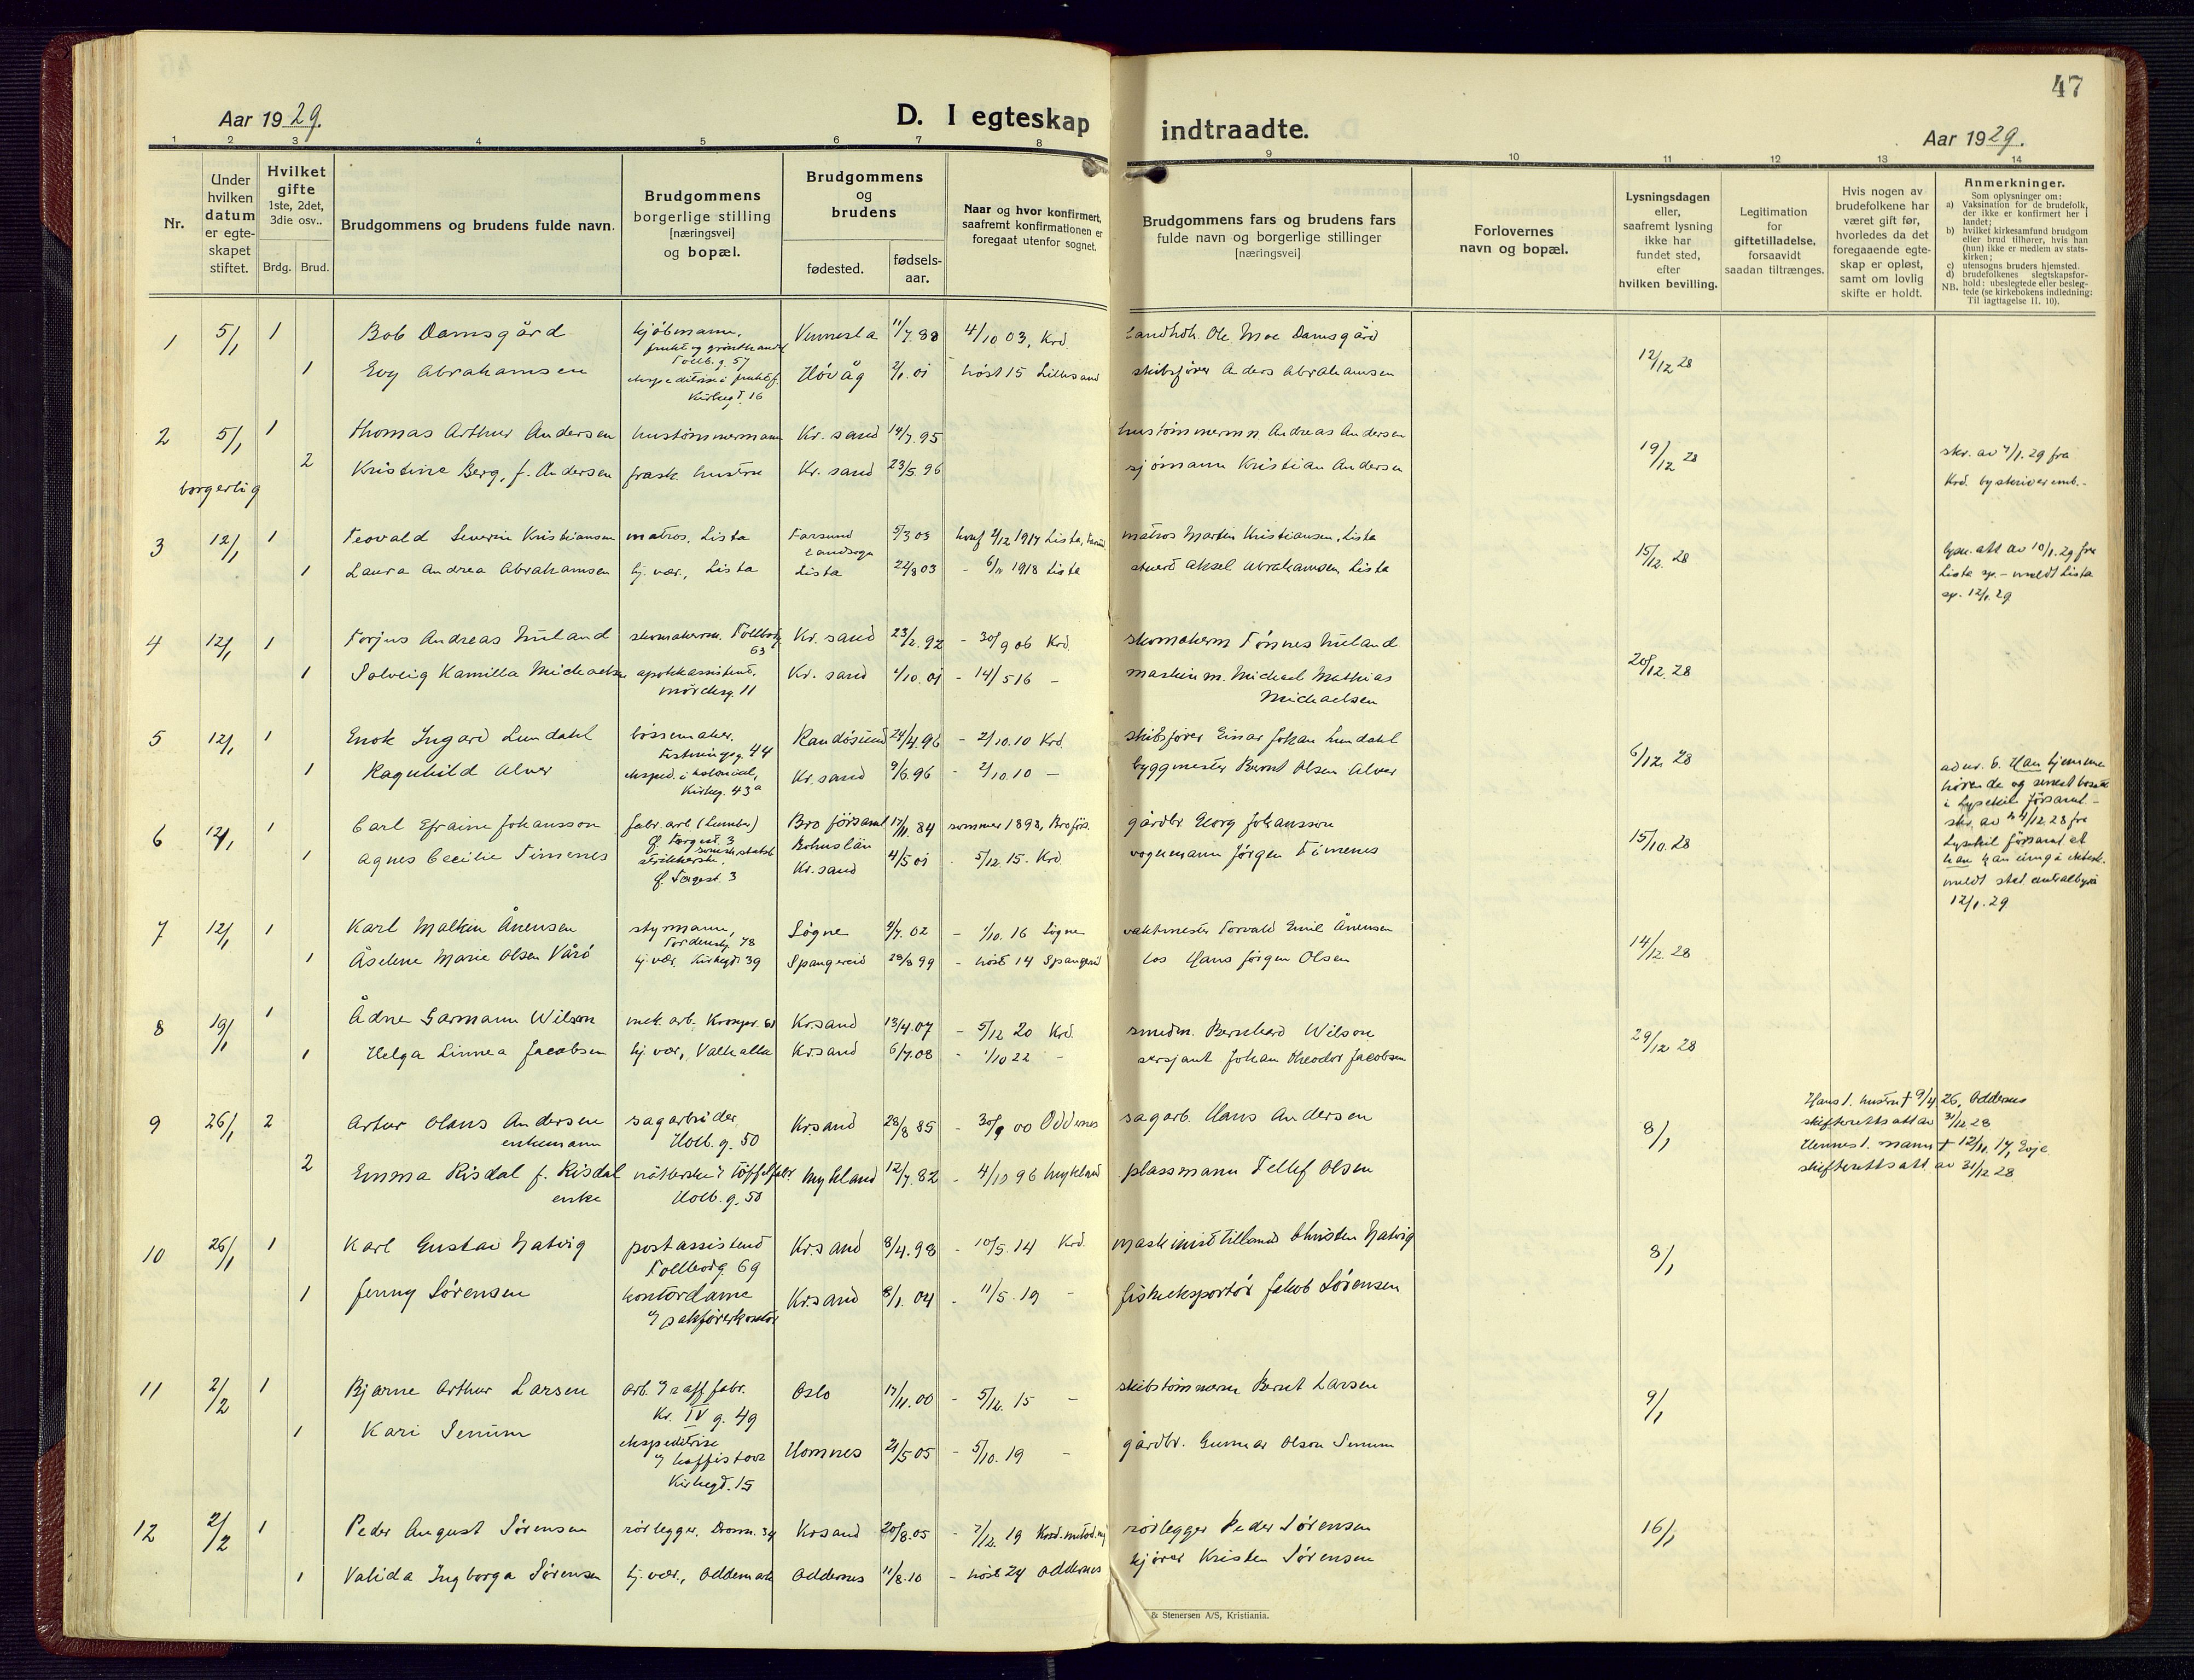 47
Aar 1929.
D. I egteskap indtraadte.
Aar 1929.
1 2 3 4 5 6 7 8 9 10 11 12 13 14
Nr.
Under hvilken datum er egteskapet stiftet.
Hvilket gifte 1ste, 2det, 3die osv..
Brdg. Brud.
Brudgommens og brudens fulde navn.
Brudgommens borgerlige stilling [næringsvei] og bopæl.
Brudgommens og brudens
fødested.
fødsels-aar.
Naar og hvor konfirmert, saafremt konfirmationen er foregaat utenfor sognet.
Brudgommens fars og brudens fars fulde navn og borgerlige stillinger [næringsvei]
Forlovernes navn og bopæl.
Lysningsdagen eller, saafremt lysning ikke har fundet sted, efter hvilken bevilling.
Legitimation for giftetilladelse, forsaavidt saadan tiltrænges.
Hvis nogen av brudefolkene har været gift før, hvorledes da det foregaaende egteskap er opløst, samt om lovlig skifte er holdt.
Anmerkninger.
Som oplysninger om:
a) Vaksination for de brudefolk, der ikke er konfirmert her i landet;
b) hvilket kirkesamfund brudgom eller brud tilhører, hvis han (hun) ikke er medlem av statskirken;
c) utensogns bruders hjemsted.
d) brudefolkenes slegtskapsforhold: ubeslegtede eller beslegtede (se kirkebokens indledning:
NB. Til iagttagelse II. 10).
1 5/1 1 Bob Damsgård kjøbmann, frukt og grønthandel Tollb.g. 57 Vennesla 11/7.88 4/10 03, Krd. Landhdl. Ole Moe Damsgård 12/12 28
1 Evy Abrahamsen Kirkegt. 16 Høvåg 2/1.01 høst 15 Lillesand skibsfører Anders Abrahamsen
2 5/1 1 Thomas Arthur Andersen hustømmermann Kr.sand 14/7.95 hustømmermn Andreas Andersen 19/12 28
borgerlig 2 Kristine Berg, f. Andersen frask. hustru Kr.sand 23/5.96 sjømann Kristian Andersen
skr. av 7/1.29 fra
Krd. byskriveremb.-
3 12/1 1 Teovald Severin Kristiansen matros, Lista Farsund landsogn 5/3 03 matros Martin Kristiansen, Lista 15/12. 28
1 Laura Andrea Abrahamsen hj. vær., Lista Lista 22/8 03 1918 Lista stuert Aksel Abrahamsen, Lista
lysn.att av 10/1.29 fra
Lista sp. - meldt Lista
sp. 12/1.29
4 12/1 1 Torjus Andreas skomakerm. Tollbodg 63 Kr.sand 23/2.92 - 30/9 06 Krd. skomakerm Tönnes 20/12.28
1 Solveig Kamilla Michaelsen apothassistent, Kr.sand 4/10.01 - 14/5 16 - maskinm. Michael Mathias Michaelsen
5 12/1 1 Enok Ingard Lundahl bössemaker. Festningsg. 44 Randösund 24/4.96 - 2/10.10 Krd. skibsfører Einar Johan Lundahl 6/12. 28
1 Ragnhild Alver eksped. i kolonial, Kirkeg. 43a Kr.sand 9/6.96 - 2/10.10 - byggmester Bernt Olsen Alver
6 12/1 1 Carl Efraim Johansson fabr.arb (Lumber) Ø. Torggt. 3 Bro församl. Bohuslän 17/11.84 sommer 1898, Bro förs. gårdbr. Georg Johansson 15/10.28
1 Agnes Cecilie Timenes Ø. Torggt. 3 Kr.sand 4/5 01 - 5/12 15. Krd vognmann Jörgen Timenes
ad nr. 6. Han hjemme-
hørende og senest bosatt
i Lysekils församl.-
skr. av 4/12.28 fra
Lysekil församl. at
han kan inngå ektesk.
meldt stat. centralbyrå
12/1.29
7 12/1 1 Karl Malkin Ånensen styrmann, Tordenskj. 78 Søgne 4/7.02 - 1/10.16 Søgne vaktmester Torvald Emil Ånensen 14/12.28
1 Åselene Marie Olsen Vårö hj. vær. Kirkegt. 39 Spangereid 28/8 99 - høst 14 Spangereid los Hans Jörgen Olsen
8 19/1 1 Ådne Garmann Wilson mek. arb. Kronpr. 61 Kr.sand 13/4.07 - 5/12 20 Krd. smedm. Bernhard Wilson 29/12 28
1 Helga Linnea Jacobsen hj. vær, Valhalla Kr.sand 6/7.08 - 1/10 22 - sersjant Johan Theodor Jacobsen
9 26/1 2 Artur Olaus Andersen enkemann sagarbeider, Holb. g. 50 Kr.sand 28/8 85 - 30/9 00 Oddernes sagarb. Hans Andersen 8/1
2 Emma Risdal f. Risdal enke Holb. g. 50 Mykland 12/7.82 - 4/10 96 Mykland plassmann Tellef Olsen
Hans 1. hustru † 9/4 26, Oddernes
skifterettsatt av 31/12 28
Hennes 1. mann † 12/11.17, Evje
skifterettsatt av 31/12 28
10 26/1 1 Karl Gustav Natvig postassistent Tollbodg. 69 Kr.sand 8/4.98 - 10/5.14 Krd. maskinist tillands Christen Natvig 8/1
1 Jenny Sørensen kontordame Kr.sand 8/1.04 - 11/5.19 - fiskeeksportør Jakob Sørensen
11 2/2 1 Bjarne Arthur Larsen Kr. IV g. 49 Oslo 17/11.00 - 5/12.15 - skibstömmerm Bernt Larsen 9/1
1 Kari Senum ekspeditrise Kirkegt. 15 Hornnes 21/5 05 - 5/10.19 - gårdbr. Gunnar Olson Senum
12 2/2 1 Peder August Sørensen rörlegger, Dronn. 34 Kr.sand 20/8.05 - 7/12. 19 rörlegger Peder Sørensen 16/1
1 Valida Ingborga Sørensen hj. vær., Oddemark Oddernes 11/8.10 - höst 24 Oddernes kjörer Kristen Sørensen
& Stenersen A/S, Kristiania.